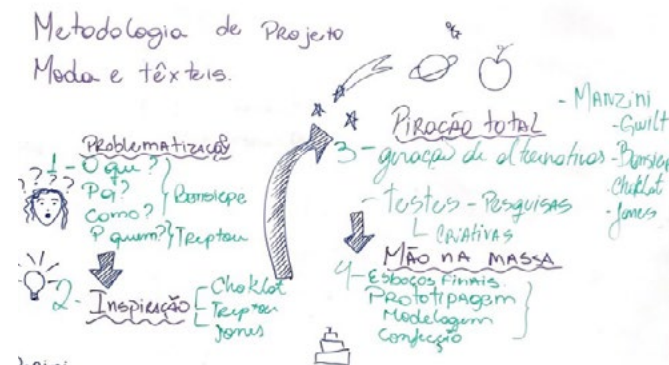 Metodologia de Projeto
Moda e têxteis.
Problematização
? ? ? ?
1 - O que?
Pq?
Como?
P quem?
Bonsiepe
Treptow
2 - Inspiração
Choklat
Treptow
Jones
Piração total
3 - geração de alternativas
- testes - Pesquisas
criativas
- Manzini
- Gwilt
- Bonsiep
- Choklat
- Jones
Mão na massa
4 - Esboços finais
Prototipagem
Modelagem
Confecção